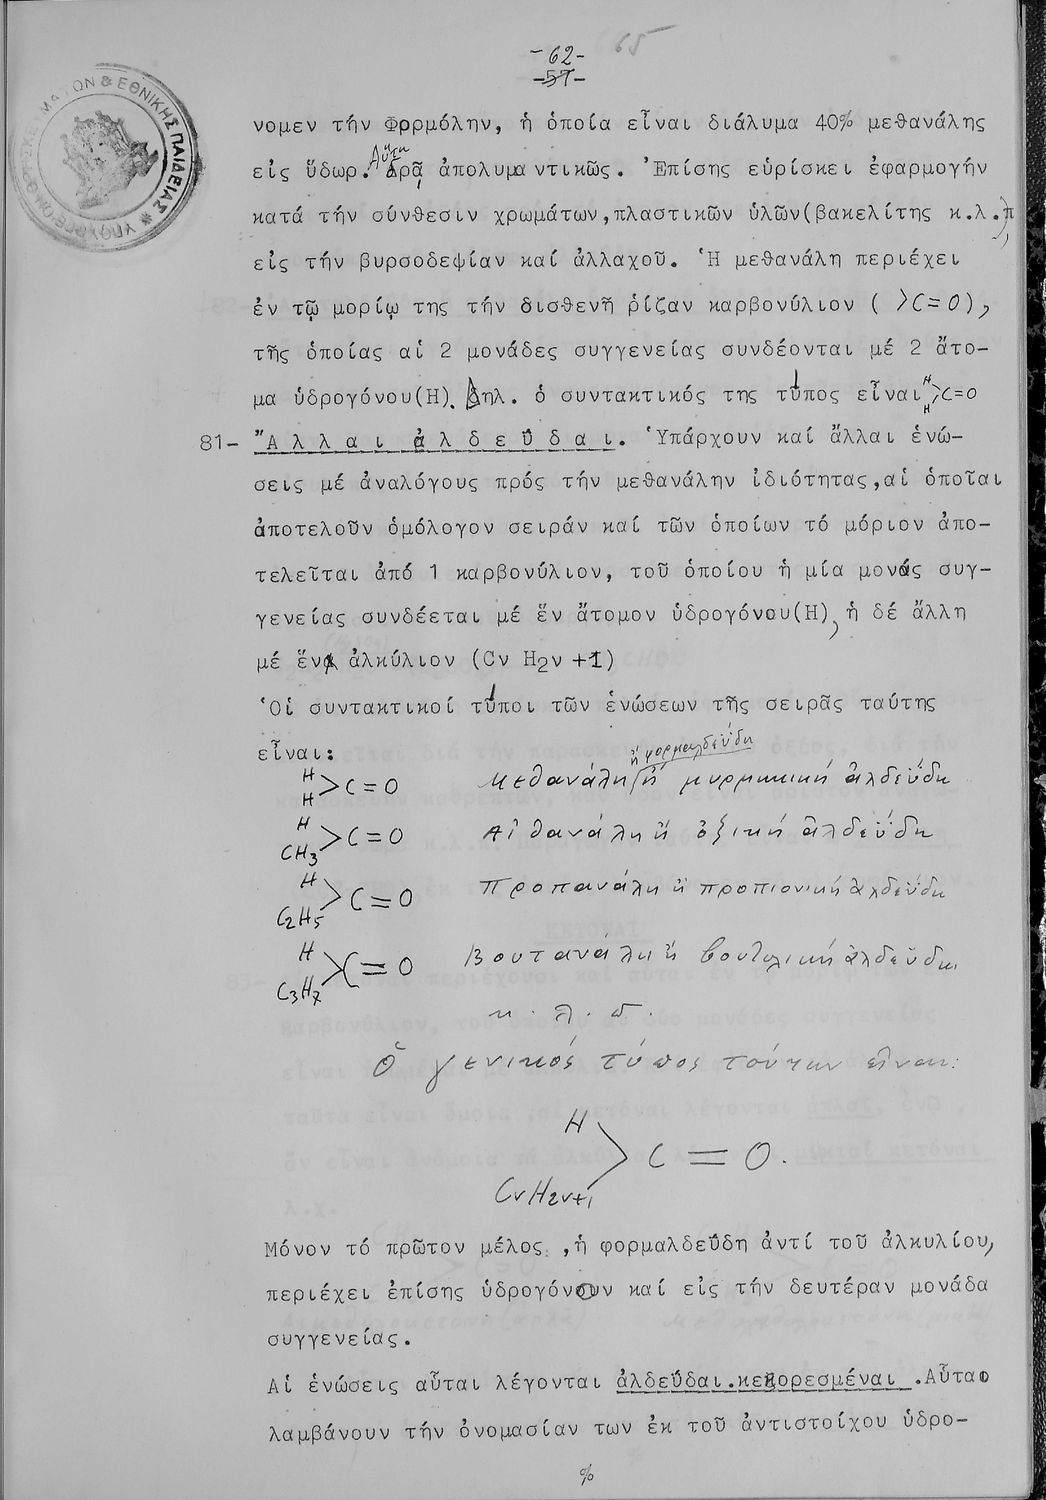 -62- 65
-57-
νομεν τήν Φορμόλην, ἡ ὁποία εἶναι διάλυμα 40% μεθανάλης
εἰς ὕδωρ. Αὕτη δρᾷ ἀπολυμαντικῶς. Ἐπίσης εὑρίσκει ἐφαρμογήν
κατά τήν σύνθεσιν χρωμάτων,πλαστικῶν ὑλῶν(βακελίτης κ.λ.π),
εἰς τήν βυρσοδεψίαν καί ἀλλαχοῦ. Ἡ μεθανάλη περιέχει
ἐν τῷ μορίῳ της τήν δισθενῆ ρίζαν καρβονύλιον ( >C=O),
τῆς ὁποίας αἱ 2 μονάδες συγγενείας συνδέονται μέ 2 ἄτο-
μα ὑδρογόνου(Η). Δηλ. ὁ συντακτικός της τύπος εἶναι H H >C=O
81- Ἄλλαι ἀλδεΰδαι. Ὑπάρχουν καί ἄλλαι ἑνώ-
σεις μέ ἀναλόγους πρός τήν μεθανάλην ἰδιότητας,αἱ ὁποῖαι
ἀποτελοῦν ὁμόλογον σειράν καί τῶν ὁποίων τό μόριον ἀπο-
τελεῖται ἀπό 1 καρβονύλιον, τοῦ ὁποίου ἡ μία μονάς συγ-
γενείας συνδέεται μέ ἕν ἄτομον ὑδρογόνου(Η), ἡ δέ ἄλλη
μέ ἕν ἀλκύλιον (Cν H2ν +1)
Οἱ συντακτικοί τύποι τῶν ἑνώσεων τῆς σειρᾶς ταύτης
εἶναι:
ἤ φορμαλδεΰδη
H H >C=O Μεθανάλη ἤ μυρμηκική ἀλδεΰδη
H CH3 >C=O Αἰθανάλη ἤ ὀξική ἀλδεΰδη
H C2H5 >C=O Προπανάλη ἤ προπιονική ἀλδεΰδη
H C3H7 >C=O Βουτανάλη ἤ βουτυλική ἀλδεΰδη
κ.λ.π.
Ὁ γενικός τύπος τούτων εἶναι:
H CνH2ν+1 >C=O.
Μόνον τό πρῶτον μέλος ,ἡ φορμαλδεΰδη ἀντί τοῦ ἀλκυλίου,
περιέχει ἐπίσης ὑδρογόνον καί εἰς τήν δευτέραν μονάδα
συγγενείας.
Αἱ ἑνώσεις αὗται λέγονται ἀλδεΰδαι κεκορεσμέναι .Αὗται
λαμβάνουν τήν ὀνομασίαν των ἐκ τοῦ ἀντιστοίχου ὑδρο-
%